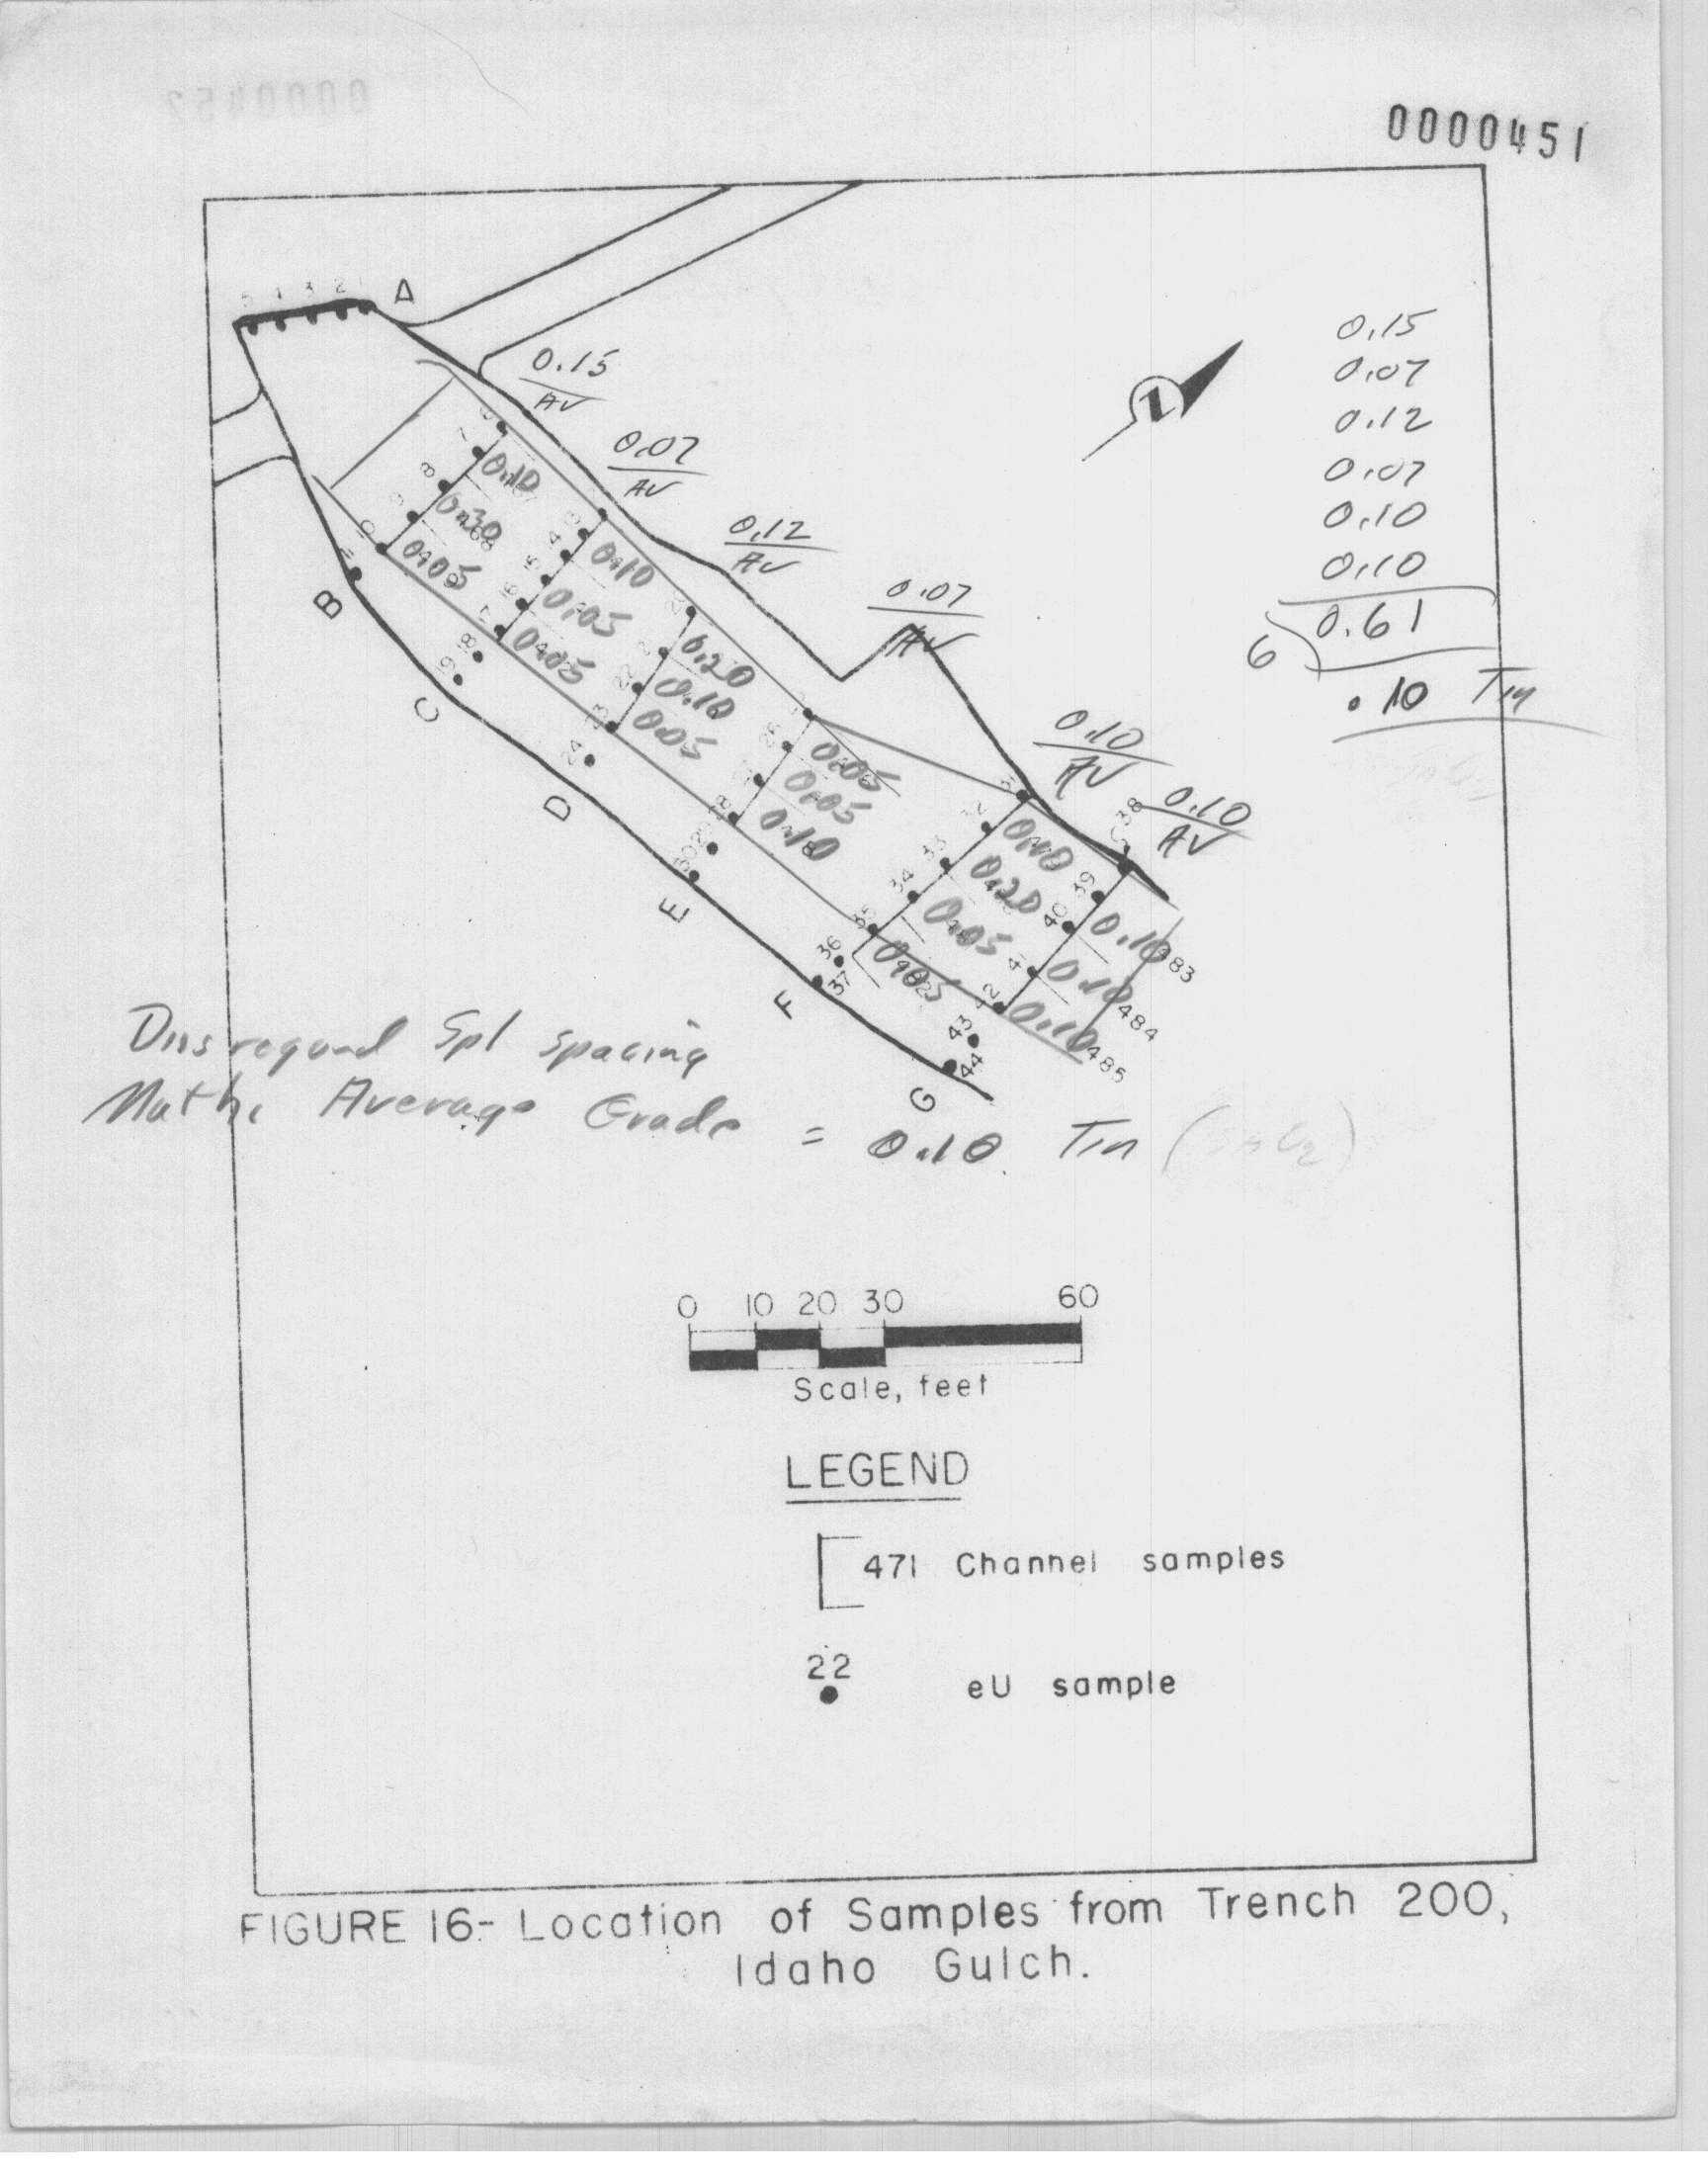 0000452
0000451
A
5 4 3 2 1
0.15
AV
0.07
AV
0.12
AV
0.07
AV
0.10
AV
0.10
AV
0.15
0.07
0.12
0.07
0.10
0.10
6 0.61
.10 Tin
6 7 8 9
0.10
0.30
0.05
B
0.10
0.05
0.05
18
19
C
22 23
0.20
0.10
0.05
24
D
26 28
0.05
0.05
0.10
29
30
E
32 33 34 35
0.10
0.20
0.05
0.05
36
37
F
38
39
40
42
0.10 483
0.10 484
0.10 485
43
44
G
Disregard Spl spacing
Math. Average Grade = 0.10 Tin (SnO2)
0 10 20 30 60
Scale, feet
LEGEND
471 Channel samples
22
eU sample
FIGURE 16.- Location of Samples from Trench 200,
Idaho Gulch.